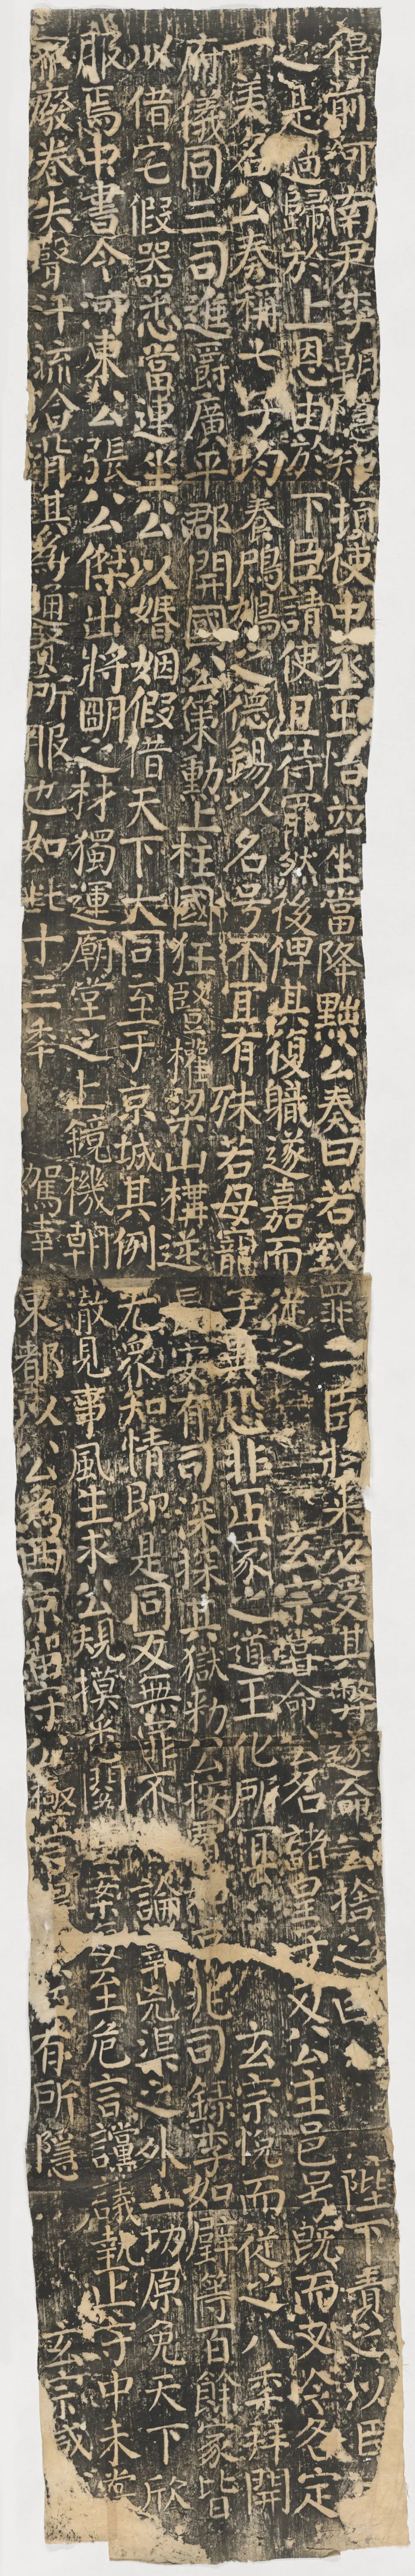 得前河南尹李朝隱知頓使中丞王怡並坐當降黜公奏曰若致罪二臣將來必受其弊遽命公捨之曰陛下責之以臣
之是過歸於上恩由於下臣請使且待罪然後俾其復職遂嘉而從之玄宗嘗命名諸皇子及公主邑号既而又令各定
一美名公奏稱七子均養鳲鳩之德錫以名号不宜有殊若母寵子異恐非正家之道王化所宜玄宗悅而從之八秊拜開
府儀同三司進爵廣平郡開國公策勳上柱國狂豎權梁山構逆長安有司深探其獄勑公按覆北司錄李如璧等百餘家皆
以借宅假器悉當連坐公以婚姻假借天下大同至于京城其例尤眾知情即是同反無罪不論辜兇渠之外一切原免天下欣
服焉中書令河東公張公傑出將明之材獨運廟堂之上鏡機朝散見事風生求公規模悉閱案每至危言讜議執正守中未嘗
不廢卷失聲汗流合背其為通賢所服也如此十二秊駕幸東都以公為西京留守公極官有所隱玄宗或